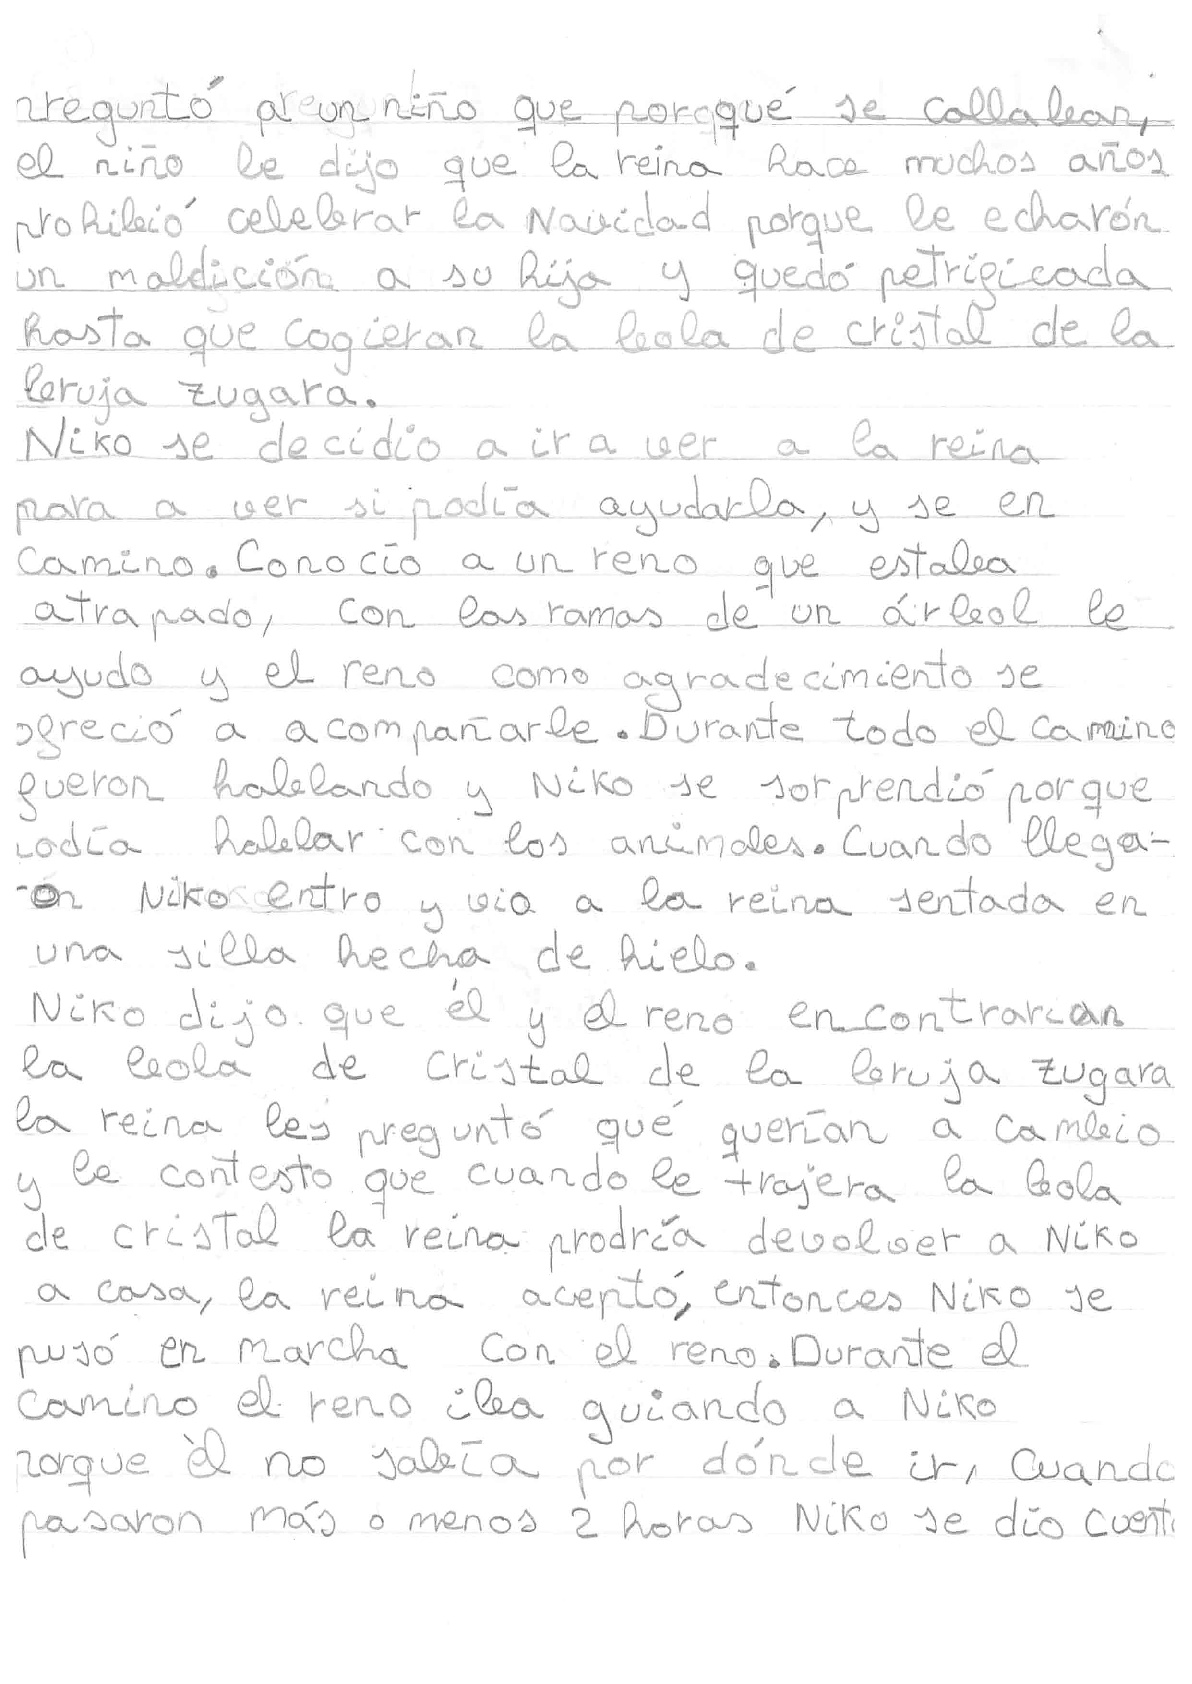 preguntó a un niño que porqué se callaban,
el niño le dijo que la reina hace muchos años
prohibió celebrar la Navidad porque le echarón
un maldición a su hija y quedó petrificada
hasta que cogieran la bola de cristal de la
bruja zugara.
Niko se decidio a ir a ver a la reina
para a ver si podía ayudarla, y se en
camino. Conocío a un reno que estaba
atrapado, con las ramas de un árbol le
ayudo y el reno como agradecimiento se
ofreció a acompañarle. Durante todo el camino
fueron hablando y Niko se sorprendió porque
podía hablar con los animales. Cuando llega-
on Niko entro y vio a la reina sentada en
una silla hecha de hielo.
Niko dijo que él y el reno encontrarian
la bola de cristal de la bruja zugara
la reina les preguntó qué querían a cambio
y le contesto que cuando le trajera la bola
de cristal la reina prodría devolver a Niko
a casa, la reina aceptó, entonces Niko se
pusó en marcha con el reno. Durante el
camino el reno iba guiando a Niko
porque èl no sabía por dónde ir, Cuando
pasaron más o menos 2 horas Niko se dío cuent